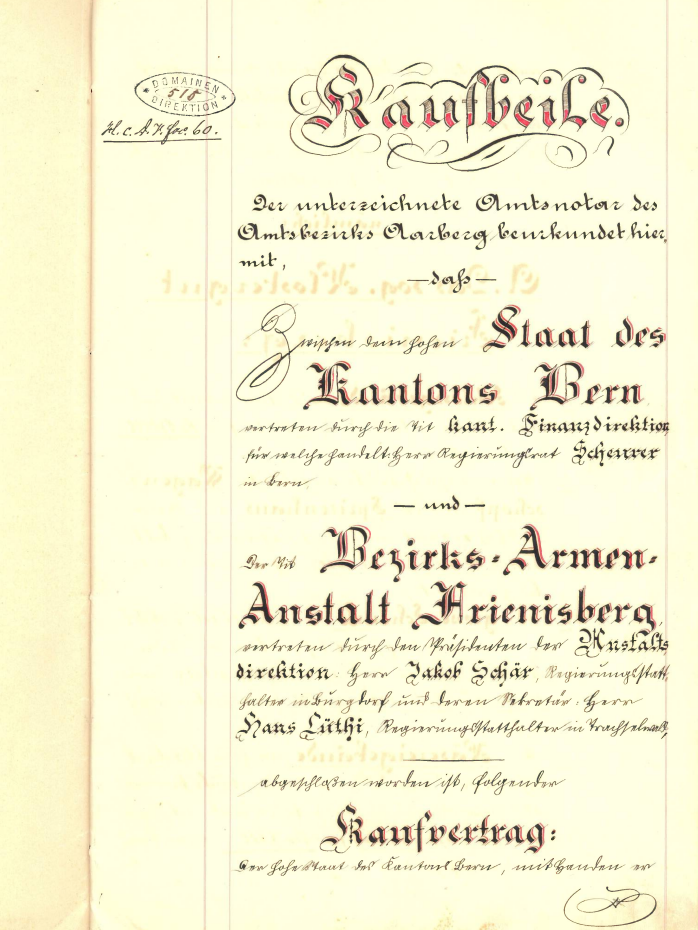 DOMAINEN
515
DIREKTION
Kaufbeile.
Der unterzeichnete Amtsnotar des
Amtsbezirks Aarberg beurkundet hier,
mit,
— daß —
Zwischen dem hohen Staat des
Kantons Bern
vertreten durch die Tit kant. Finanzdirektion
für welche handelt: Herr Regierungsrat Scheurer
in Bern
— und —
Der Tit Bezirks-Armen-
Anstalt Frienisberg,
vertreten durch den Präsidenten der Anstalts
direktion: Herr Jakob Schär, Regierungsstatt,
halter in Burgdorf und deren Sekretär: Herr
Hans Lüthi, Regierungsstatthalter in Trachselwald,
abgeschloßen worden ist, folgender
Kaufvertrag:
Der hohe Staat des Kantons Bern, mit Handen er